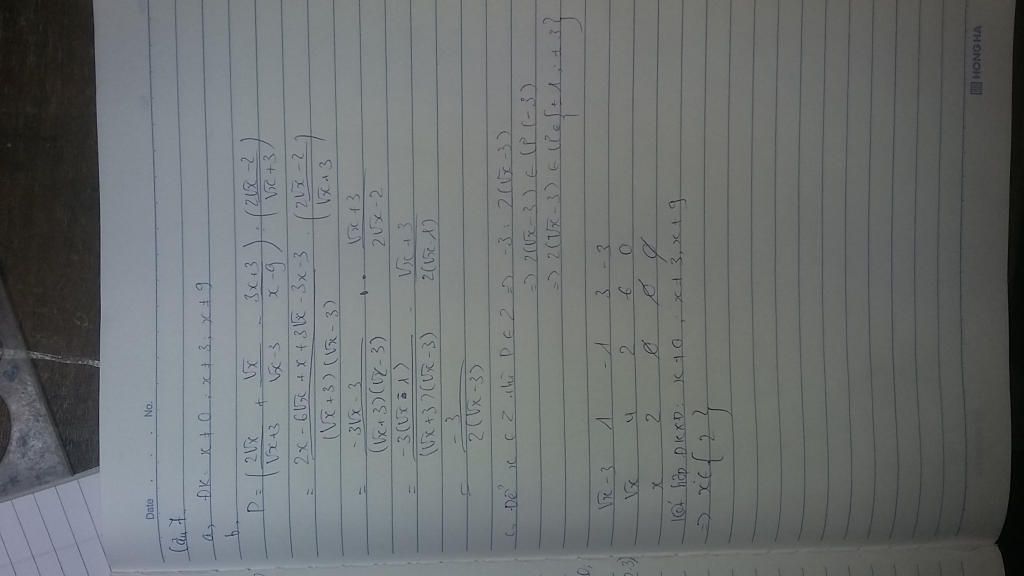 Date . . . No.
Câu 1
a, ĐK: x ≠ 0 ; x ≠ 3, x ≠ 9
b,
P = (2√x/(√x+3) + √x/(√x-3) - (3x+3)/(x-9)) : ((2√x-2)/(√x+3))
= (2x-6√x+x+3√x-3x-3)/((√x+3)(√x-3)) : ((2√x-2)/(√x+3))
= (-3√x-3)/((√x+3)(√x-3)) . (√x+3)/(2√x-2)
= -3(√x+1)/((√x+3)(√x-3)) . (√x+3)/(2(√x-1))
= -3/(2(√x-3))
c, Để x ∈ Z P ∈ Z => -3 : 2(√x-3)
=> 2(√x-3) ∈ Ư(-3)
=> 2(√x-3) ∈ {±1, ±3}
√x-3 1 -1 3 -3
√x 4 2 6 0
x 2 0 0 0
Kết hợp ĐKXĐ: x ≠ 0, x ≠ 3, x ≠ 9
=> x ∈ {2}
HONG HA